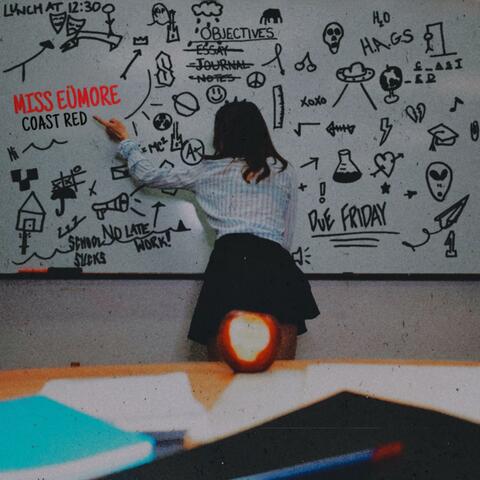 LUNCH AT 12:30
OBJECTIVES
ESSAY
JOURNAL
NOTES
H2O
H.A.G.S
MISS EÜMORE
COAST RED
XOXO
A+
DUE FRIDAY
NO LATE
WORK!
SCHOOL
SUCKS